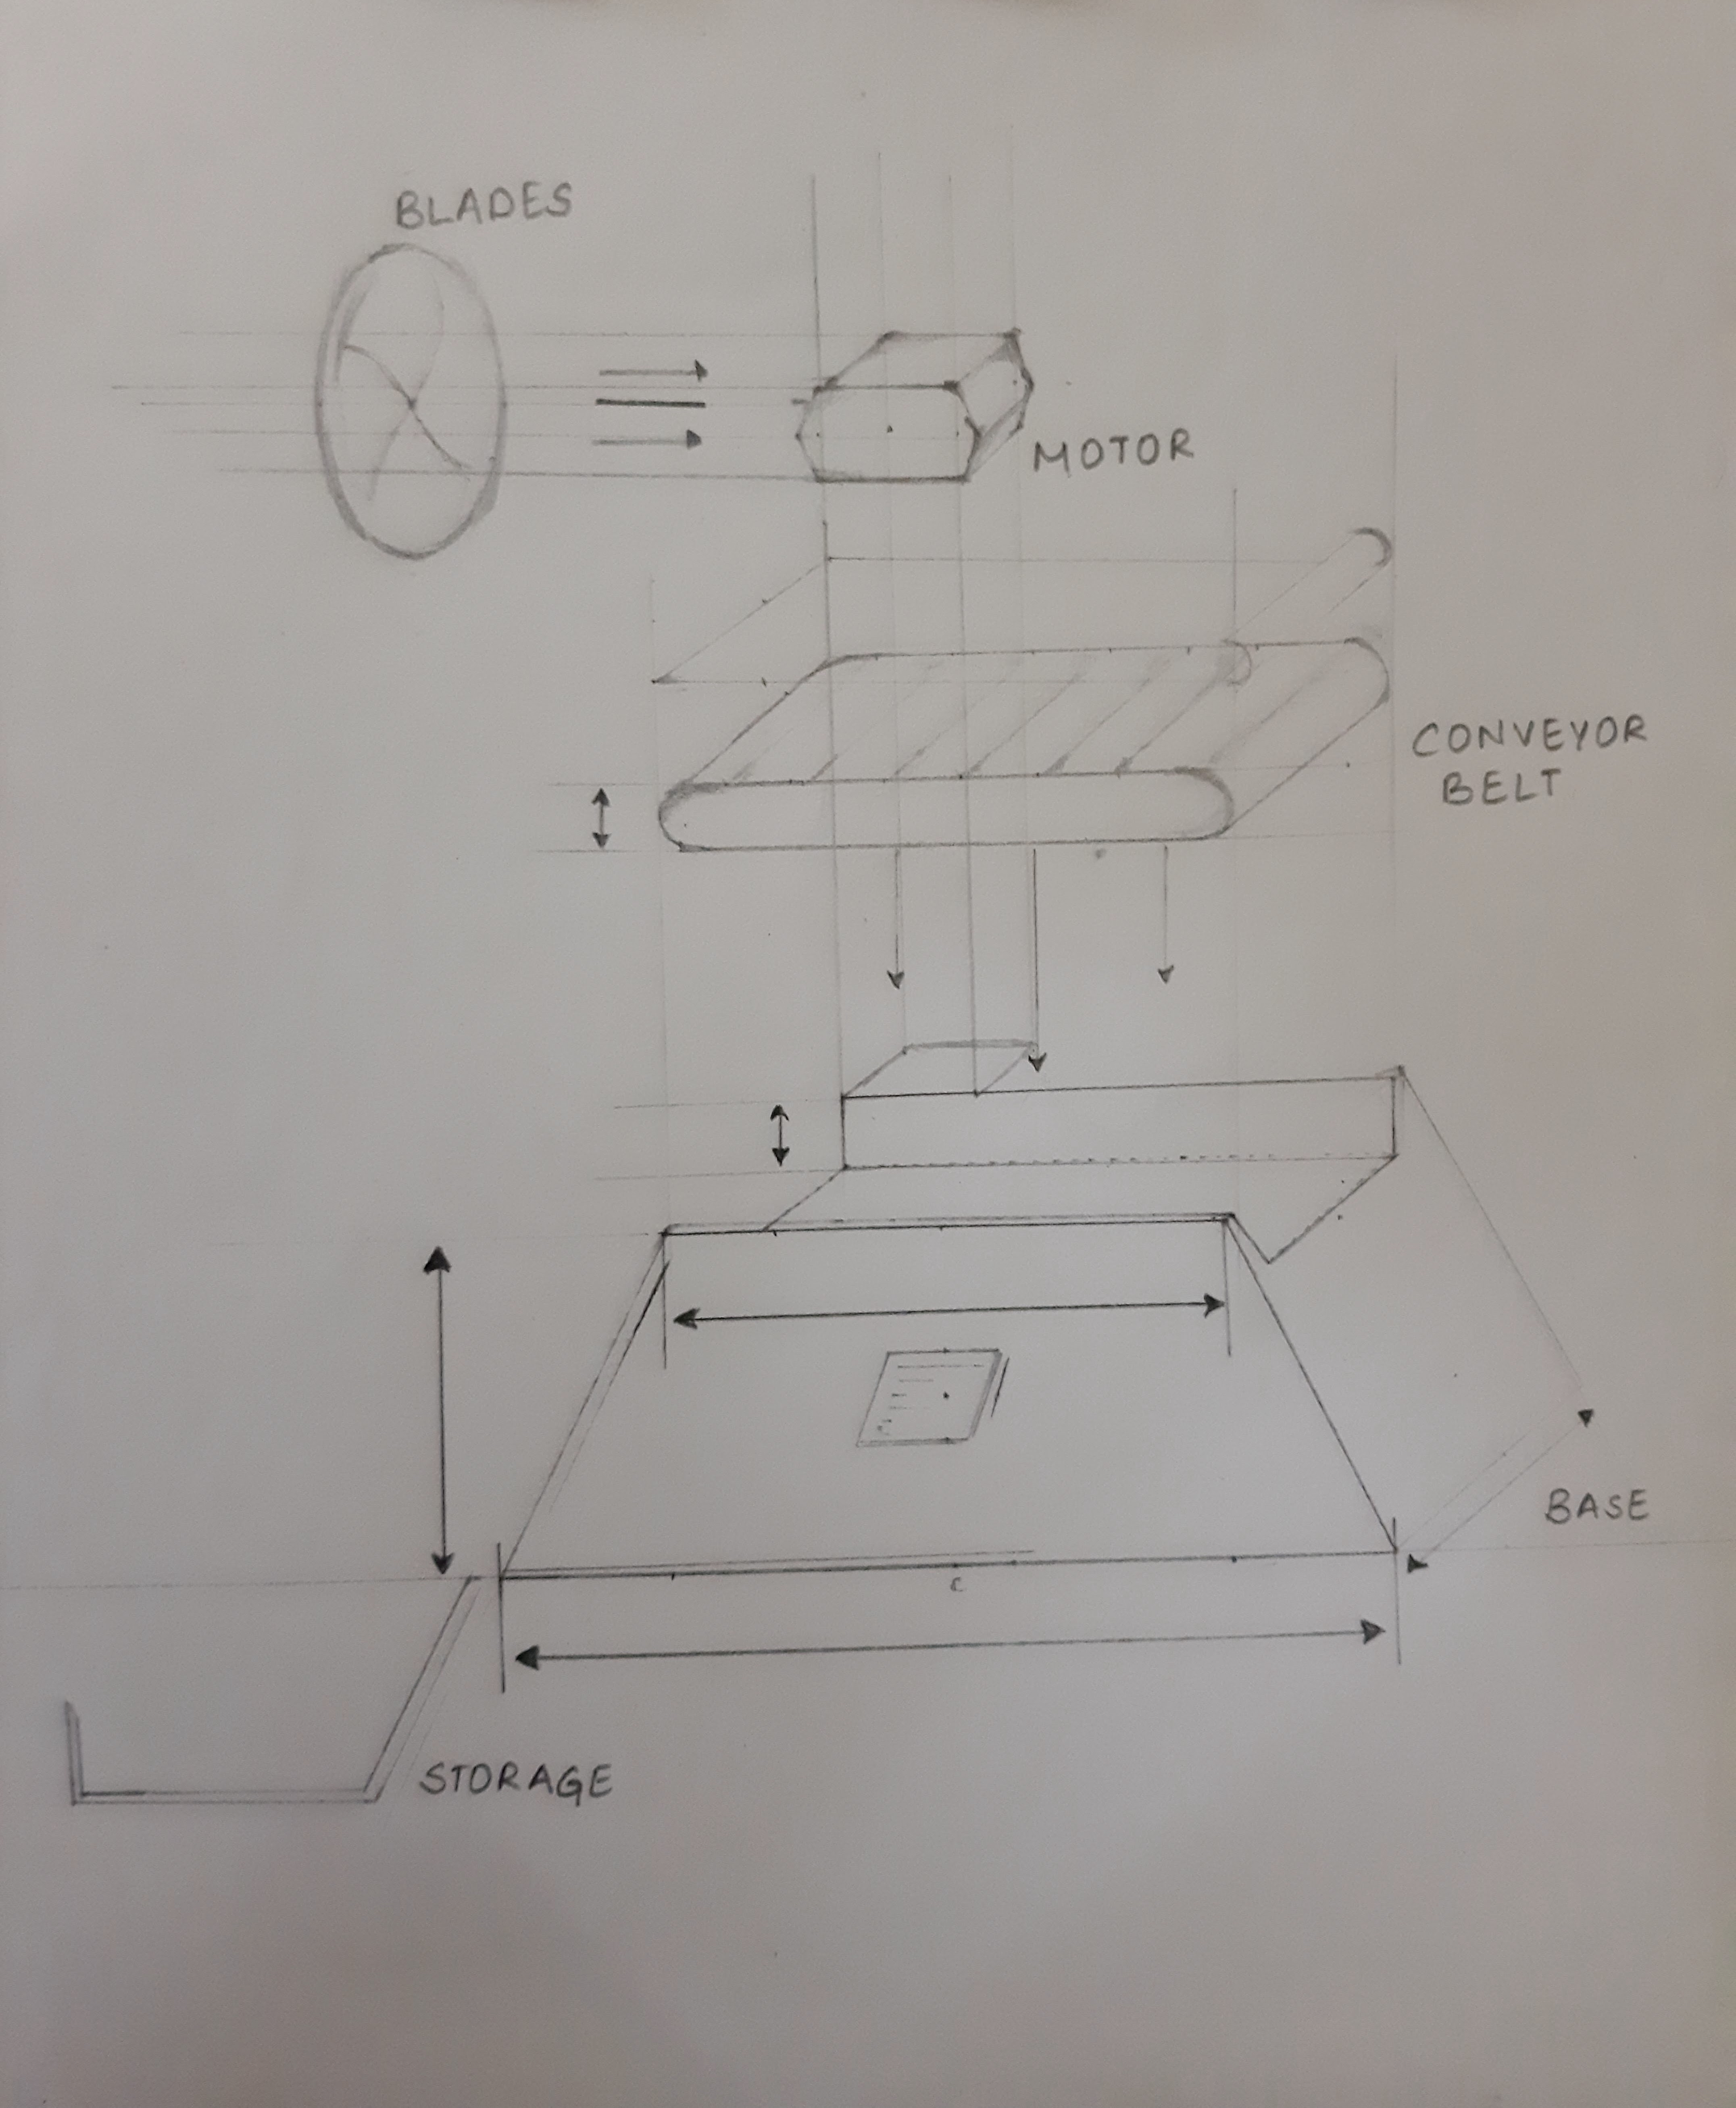 BLADES
MOTOR
CONVEYOR
BELT
BASE
C
STORAGE